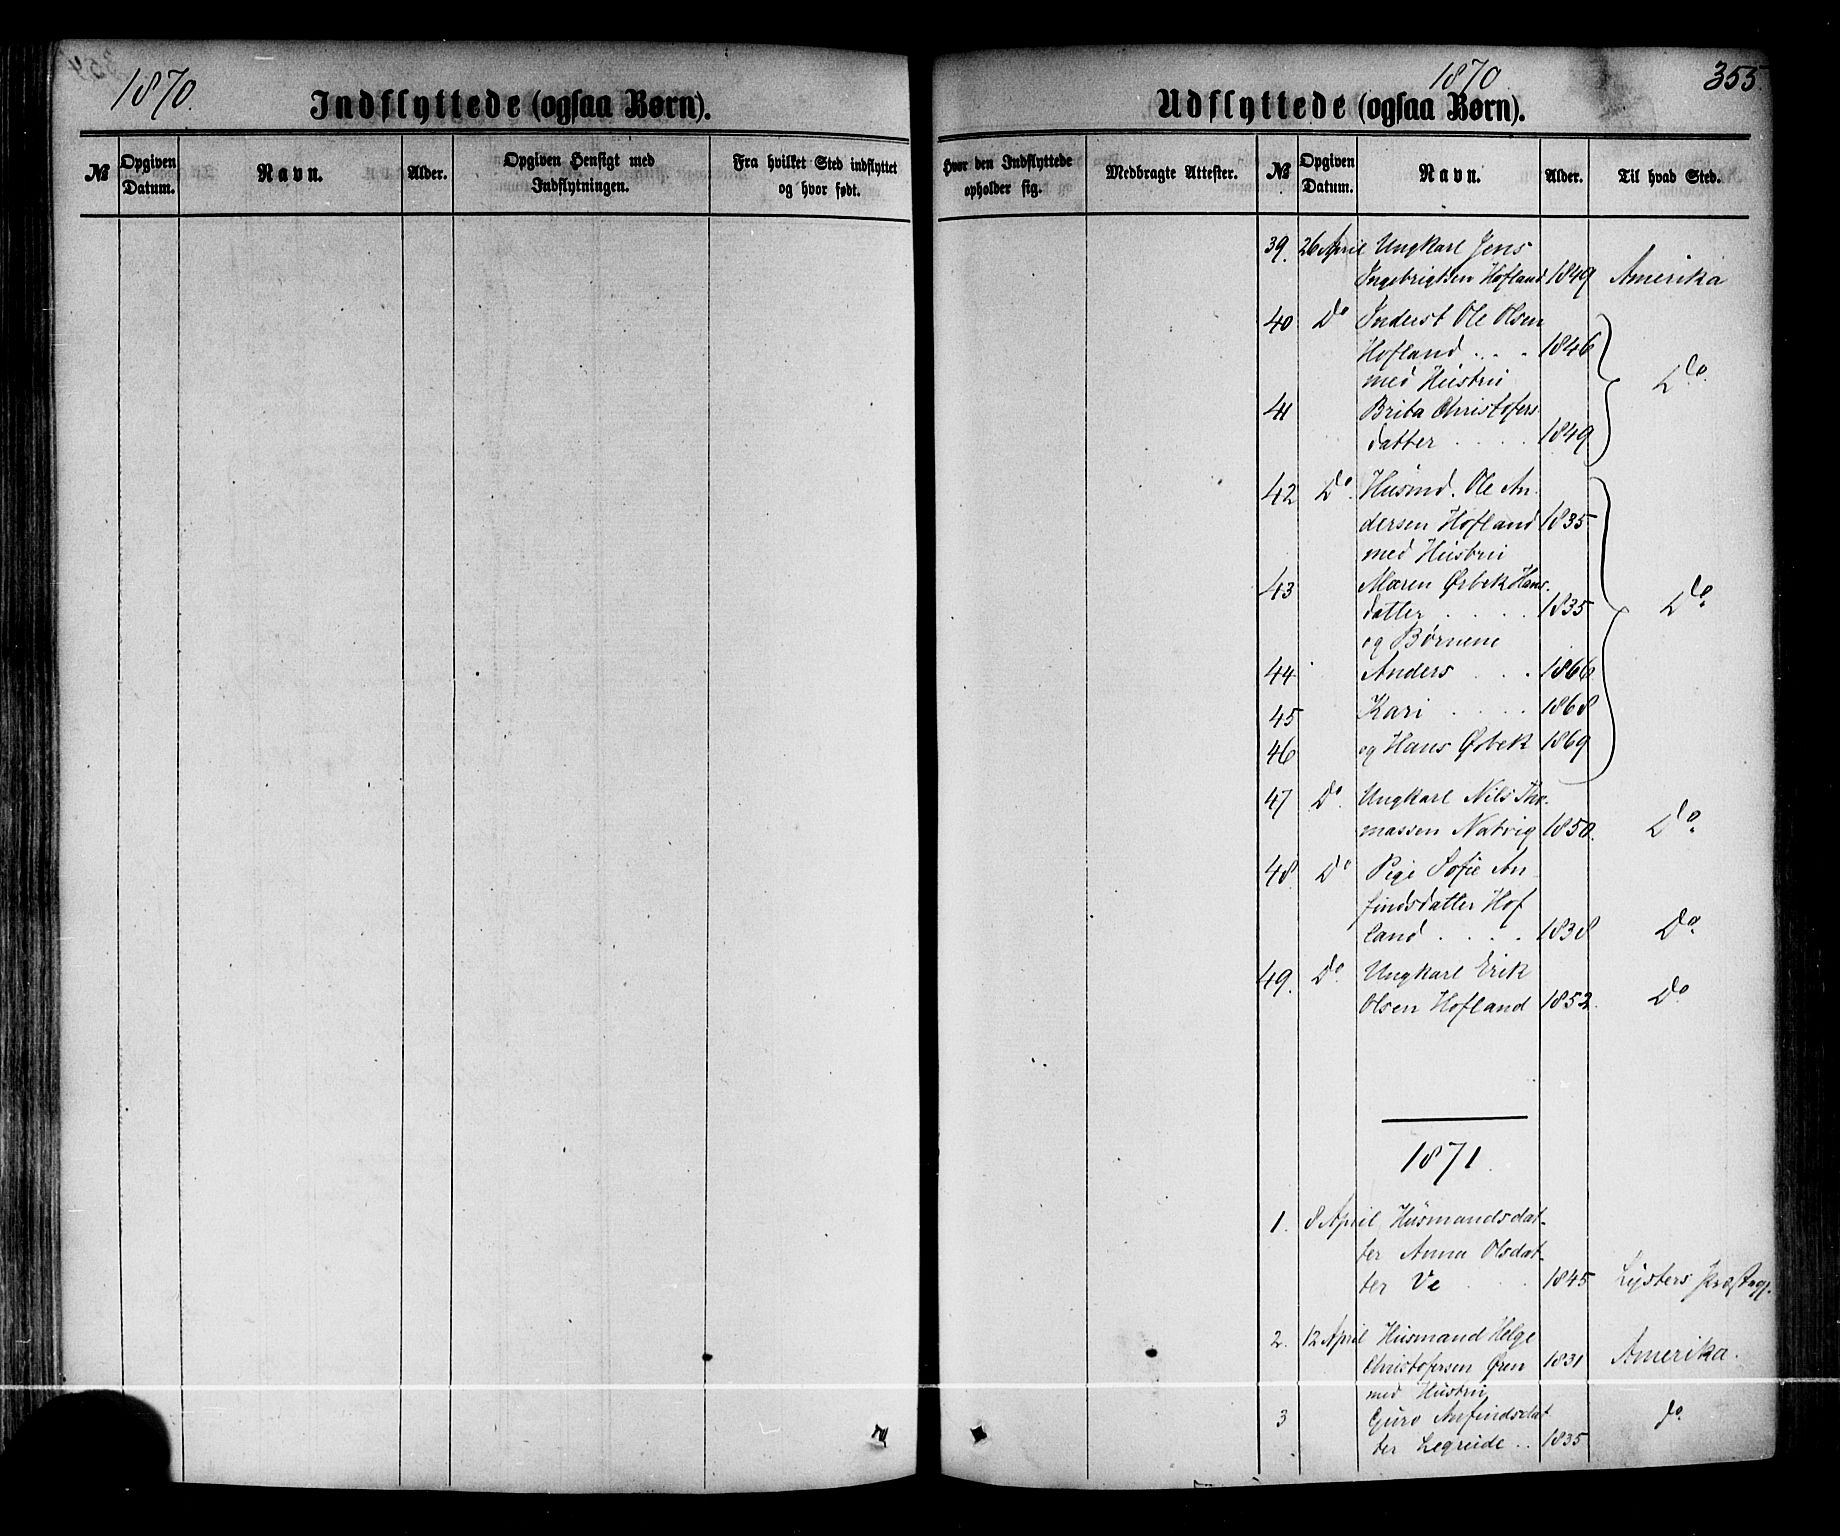 1870.
Indflyttede (ogsaa Børn).
№ Opgiven Datum. Navn. Alder. Opgiven Hensigt med Indflytningen. Fra hvilket Sted indflyttet og hvor født.
1870
355
Udflyttede (ogsaa Børn).
Hvor den Indflyttede opholder sig. Medbragte Attester. № Opgiven Datum. Navn. Alder. Til hvad Sted.
39. 26 April Ungkarl Jens
Ingebrigtsen Hofland 1849 Amerika
40 Do Inderst Ole Olsen
Hofland . . . 1846
med Hustru Do.
41 Brita Christofers
datter . . . . 1849
42 Do. Husmd. Ole An
dersen Hofland 1835
med Hustru
43 Maren Ørbek Hans
datter . . . . 1835 Do.
og Børnene
44 Anders . . . 1866
45 Kari . . . . 1868
46 og Hans Ørbek 1869
47 Do. Ungkarl Nils Tho-
massen Natvig 1850. Do.
48. Do Pige Sofie An
findsdatter Hof
land . . . . 1838 Do.
49. Do. Ungkarl Erik
Olsen Hofland 1852. Do
1871.
1. 8 April Husmandsdat-
ter Anna Olsdat-
ter Ve . . . 1845 Lysters Præstegj.
2. 12 April Husmand Helge
Christofersen Øren 1831 Amerika.
med Hustru
3 Guro Anfindsdat do.
ter Legreide .. 1835